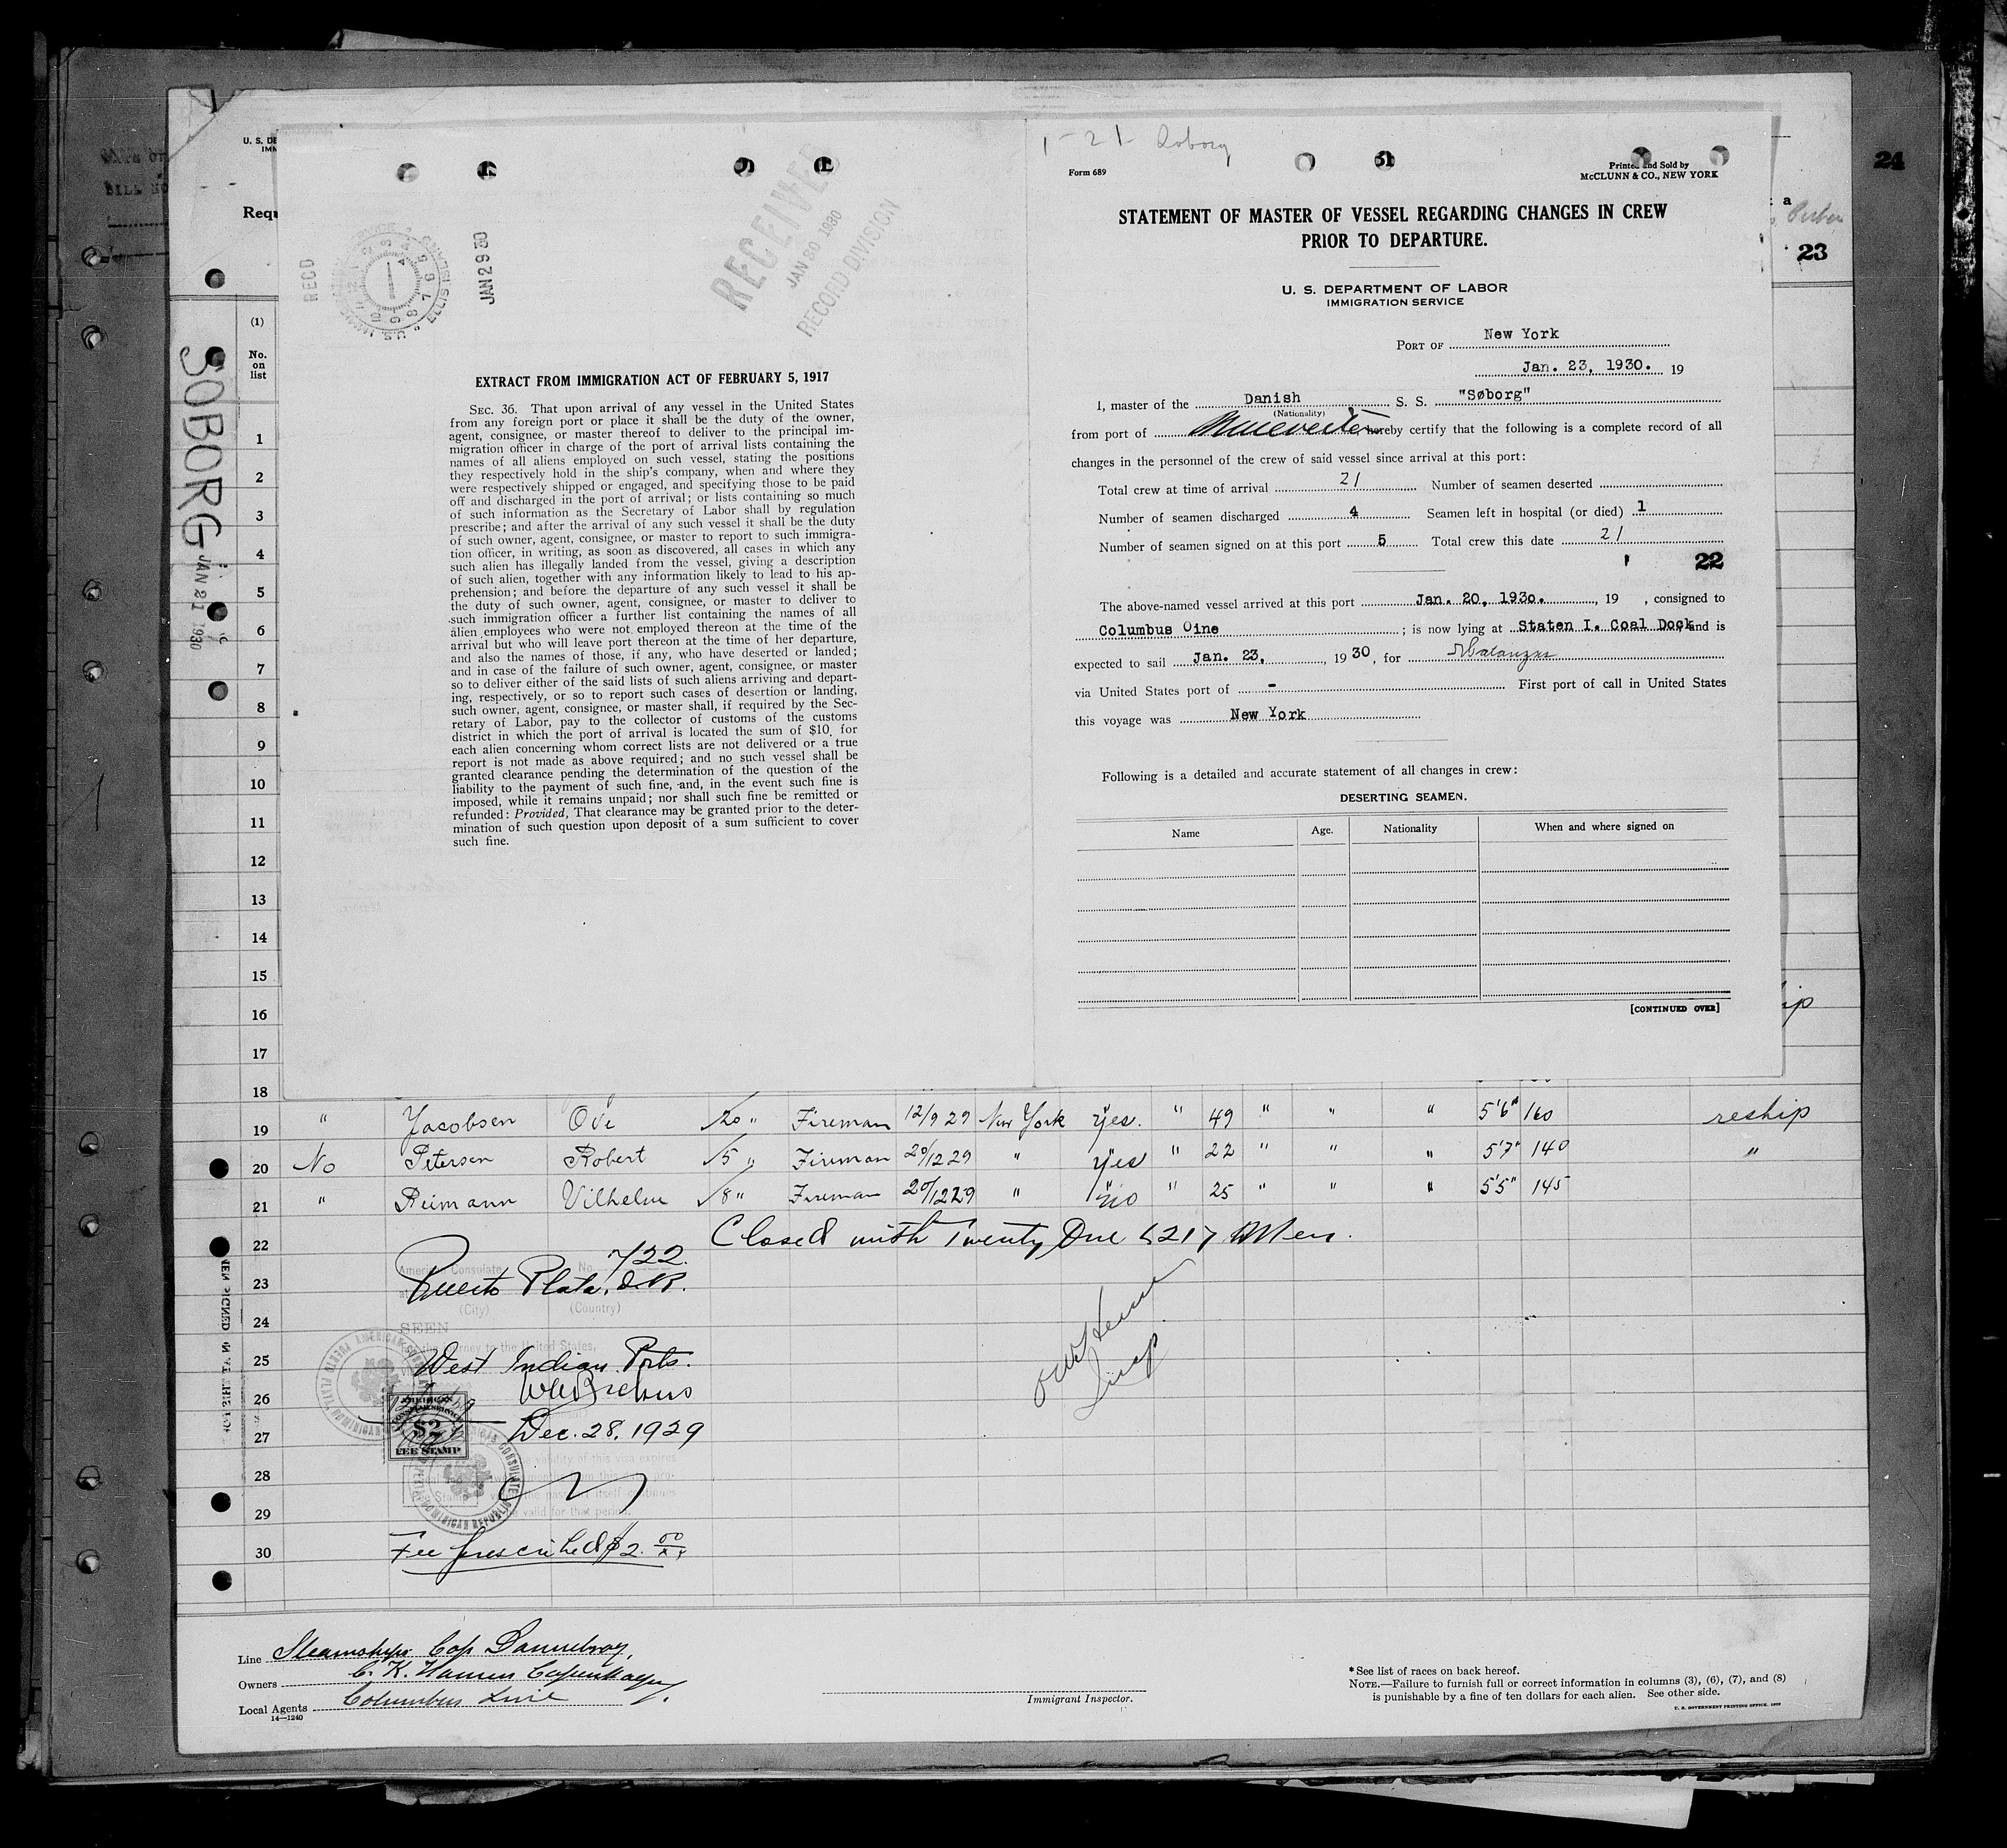 24
23
U. S. DE
IMM
Requ
(1)
No.
on
list
SOBORG
JAN 21 1930
RECD
JAN 29 30
RECEIVED
JAN 30 1930
RECORD DIVISION
EXTRACT FROM IMMIGRATION ACT OF FEBRUARY 5, 1917
SEC. 36. That upon arrival of any vessel in the United States
from any foreign port or place it shall be the duty of the owner,
agent, consignee, or master thereof to deliver to the principal im-
migration officer in charge of the port of arrival lists containing the
names of all aliens employed on such vessel, stating the positions
they respectively hold in the ship's company, when and where they
were respectively shipped or engaged, and specifying those to be paid
off and discharged in the port of arrival; or lists containing so much
of such information as the Secretary of Labor shall by regulation
prescribe; and after the arrival of any such vessel it shall be the duty
of such owner, agent, consignee, or master to report to such immigra-
tion officer, in writing, as soon as discovered, all cases in which any
such alien has illegally landed from the vessel, giving a description
of such alien, together with any information likely to lead to his ap-
prehension; and before the departure of any such vessel it shall be
the duty of such owner, agent, consignee, or master to deliver to
such immigration officer a further list containing the names of all
alien employees who were not employed thereon at the time of the
arrival but who will leave port thereon at the time of her departure,
and also the names of those, if any, who have deserted or landed;
and in case of the failure of such owner, agent, consignee, or master
so to deliver either of the said lists of such aliens arriving and depart-
ing, respectively, or so to report such cases of desertion or landing,
such owner, agent, consignee, or master shall, if required by the Sec-
retary of Labor, pay to the collector of customs of the customs
district in which the port of arrival is located the sum of $10 for
each alien concerning whom correct lists are not delivered or a true
report is not made as above required; and no such vessel shall be
granted clearance pending the determination of the question of the
liability to the payment of such fine, and, in the event such fine is
imposed, while it remains unpaid; nor shall such fine be remitted or
refunded: Provided, That clearance may be granted prior to the deter-
mination of such question upon deposit of a sum sufficient to cover
such fine.
1-21
Form 689
Printed and Sold by
McCLUNN & CO., NEW YORK
STATEMENT OF MASTER OF VESSEL REGARDING CHANGES IN CREW
PRIOR TO DEPARTURE.
U. S. DEPARTMENT OF LABOR
IMMIGRATION SERVICE
PORT OF New York
Jan. 23, 1930. 19
I, master of the Danish S. S. "Søborg"
(Nationality)
from port of hereby certify that the following is a complete record of all
changes in the personnel of the crew of said vessel since arrival at this port:
Total crew at time of arrival 21 Number of seamen deserted
Number of seamen discharged 4 Seamen left in hospital (or died) 1
Number of seamen signed on at this port 5 Total crew this date 21
22
The above-named vessel arrived at this port Jan. 20, 193o. , 19 , consigned to
Columbus Oine ; is now lying at Staten I. Coal Dock, and is
expected to sail Jan. 23, , 1930, for Matanzas
via United States port of - First port of call in United States
this voyage was New York
Following is a detailed and accurate statement of all changes in crew:
DESERTING SEAMEN.
Name Age. Nationality When and where signed on
[CONTINUED OVER]
1
2
3
4
5
6
7
8
9
10
11
12
13
14
15
16
17
18
19 " Jacobsen Ove 20 " Fireman 12/9 29 New York Yes. " 49 " " " 5'6" 160 reship
20 No Petersen Robert 5 " Fireman 20/12 29 " Yes " 22 " " " 5'7" 140 "
21 " Reimann Vilhelm 8 " Fireman 20/12 29 " no " 25 " " " 5'5" 145
22 Closed with Twenty One (21) Men.
American Consulate No. 722.
23 Puerto Plata, D.R.
(City) (Country)
24
SEEN
25 West Indian Ports.
26
27 Dec. 28. 1929
$2
FEE STAMP
28
29
30 Fee prescribed $2.00
Line Steamships Cop Dannebrog,
Owners C. K. Hansen Copenhagen.
Local Agents Columbus Line
14—1240
Immigrant Inspector.
* See list of races on back hereof.
NOTE.—Failure to furnish full or correct information in columns (3), (6), (7), and (8)
is punishable by a fine of ten dollars for each alien. See other side.
U. S. GOVERNMENT PRINTING OFFICE: 1929